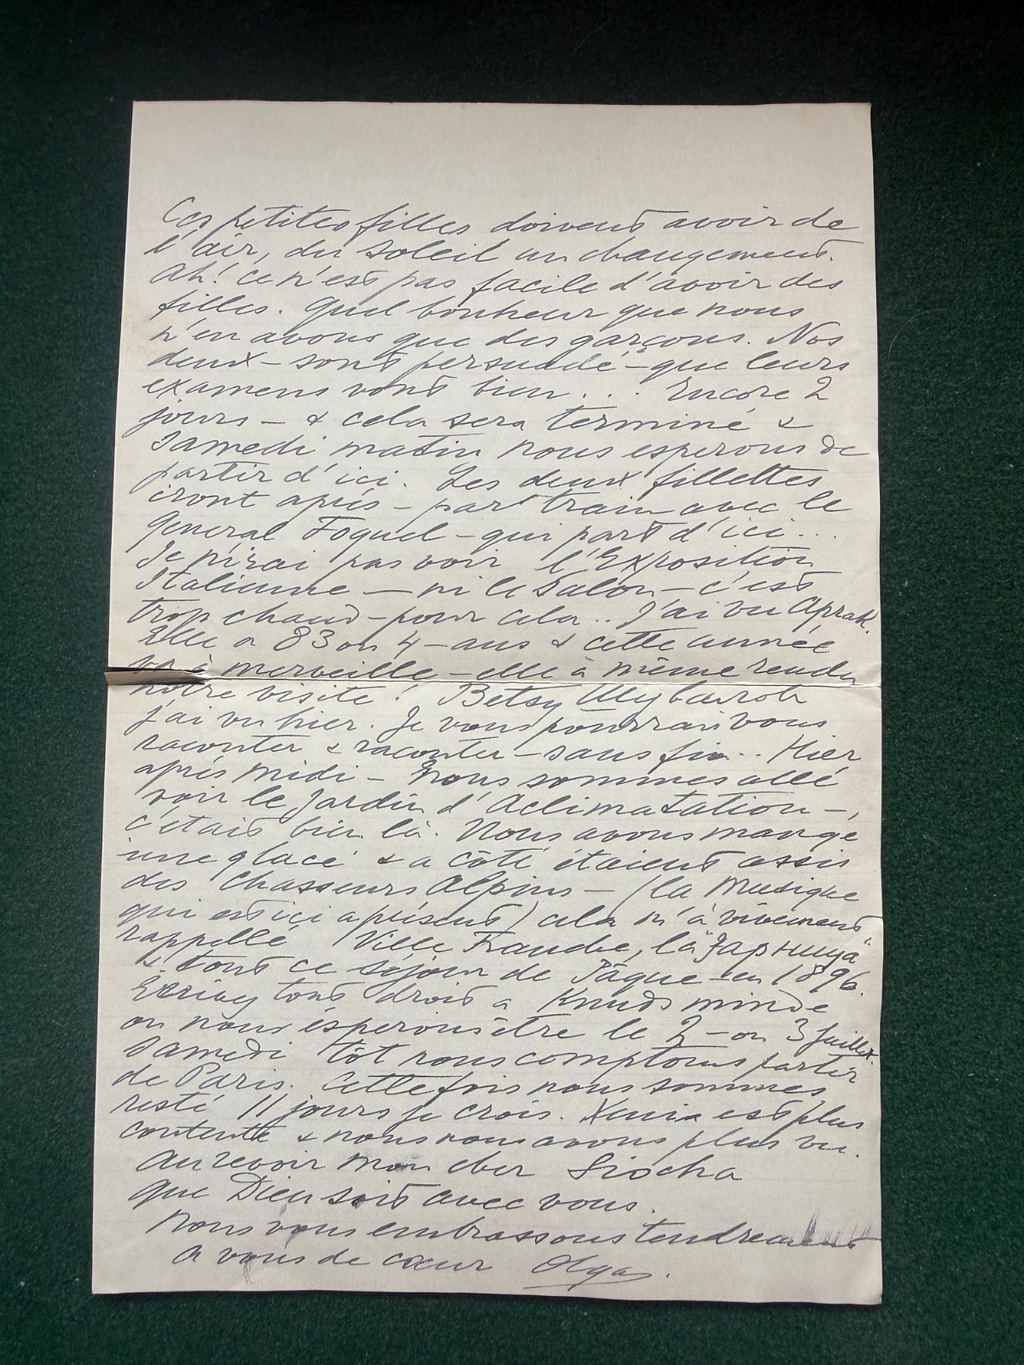 Ces petites filles doivent avoir de
l'air, du soleil un changement.
Ah! ce n'est pas facile d'avoir des
filles. Quel bonheur que nous
n'en avons que des garçons. Nos
deux – sont persuadé – que leurs
examens vont bien... Encore 2
jours – & cela sera terminé &
Samedi matin nous esperons de
partir d'ici. Les deux fillettes
iront après – par train avec le
General Foquel – qui part d'ici...
Je n'irai pas voir l'Exposition
Italienne – ni le Salon – c'est
trop chaud – pour cela.. J'ai vu Aprak.
Elle a 83 ou 4 – ans & cette année
va à merveille – elle à même rendu
notre visite! Betsy
j'ai vu hier. Je vous pourrai vous
raconter & raconter – sans fin.. Hier
après midi – nous sommes allé
voir le Jardin d'Aclimatation –,
c'etait bien là. Nous avons mangé
une glace & a côté étaient assis
des Chasseurs Alpins – (la Musique
qui est ici a présent) cela m'à vivement
rappellé Ville Franche, la "Зарница"
& tout ce séjour de Pâque en 1896.
Ecrivez tout droit a Knudsminde
ou nous ésperons être le 2 – ou 3 Juillet.
Samedi tôt nous comptons partir
de Paris. Cette fois nous sommes
resté 11 jours je crois. Xenia est plus
contente & nous nous avons plus vu.
Au revoir mon cher Siocha
que Dieu soit avec vous.
Nous vous embrassons tendrement
a vous de cœur Olga.